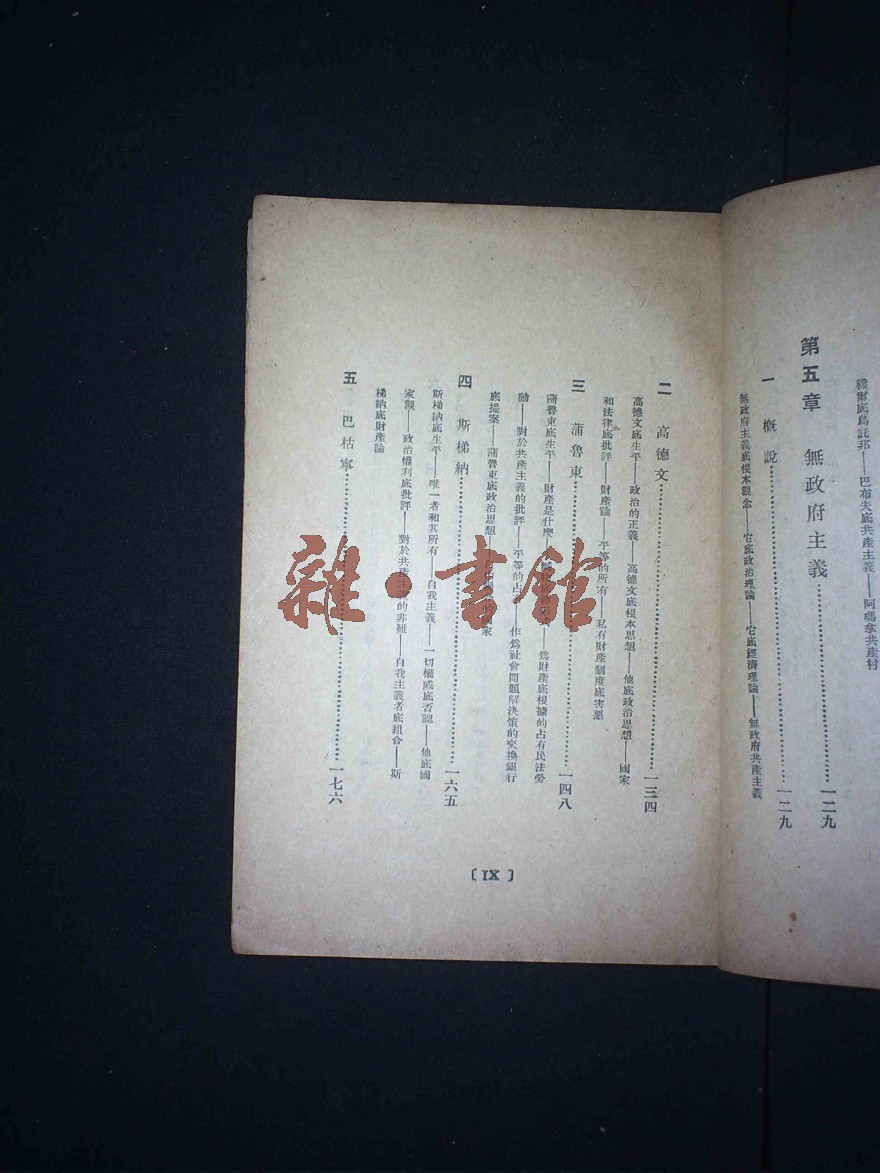 穆爾底烏託邦——巴布夫底共產主義——阿瑪拿共產村
第五章 無政府主義…………一二九
一 概說…………一二九
無政府主義底根本觀念——它底政治理論——它底經濟理論——無政府共產主義
二 高德文…………一三四
高德文底生平——政治的正義——高德文底根本思想——他底政治思想——國家
和法律底批評——財產論——平等的所有——私有財產制度底害惡
三 蒲魯東…………一四八
蒲魯東底生平——財產是什麼——為財產底根據的占有民法勞
動——對於共產主義的批評——平等的占 作為社會問題解決策的交換銀行
底提案——蒲魯東底政治思想 的國家
四 斯梯納…………一六五
斯梯納底生平——唯一者和其所有——自我主義——一切權威底否認——他底國
家觀——政治權利底批評——對於共產主義的非難——自我主義者底組合——斯
梯納底財產論
五 巴枯寧…………一七六
〔IX〕
雜·書館